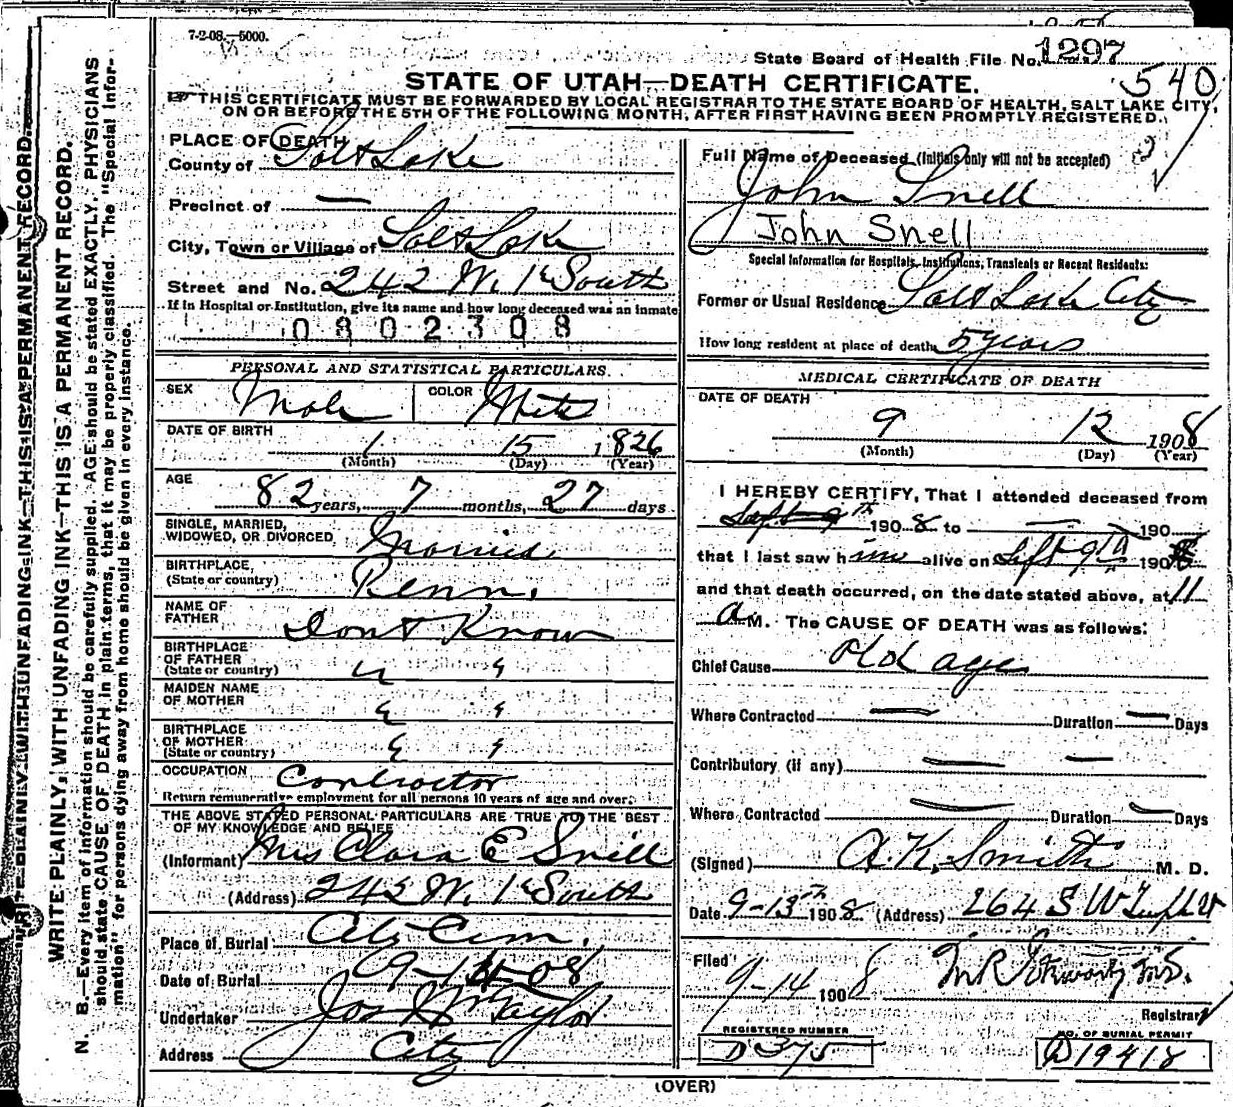 7-2-08.—5000.
State Board of Health File No. 1297
540
STATE OF UTAH—DEATH CERTIFICATE.
THIS CERTIFICATE MUST BE FORWARDED BY LOCAL REGISTRAR TO THE STATE BOARD OF HEALTH, SALT LAKE CITY,
ON OR BEFORE THE 5TH OF THE FOLLOWING MONTH, AFTER FIRST HAVING BEEN PROMPTLY REGISTERED.
PLACE OF DEATH
County of Salt Lake
Precinct of —
City, Town or Village of Salt Lake
Street and No. 242 W. 1st South
If in Hospital or Institution, give its name and how long deceased was an inmate
0802308
Full Name of Deceased (Initials only will not be accepted)
John Snell
John Snell
Special Information for Hospitals, Institutions, Transients or Recent Residents:
Former or Usual Residence Salt Lake City
How long resident at place of death 5 years
PERSONAL AND STATISTICAL PARTICULARS.
SEX Male COLOR White
DATE OF BIRTH 1 15 1826
(Month) (Day) (Year)
AGE 82 years, 7 months, 27 days
SINGLE, MARRIED,
WIDOWED, OR DIVORCED Married
BIRTHPLACE,
(State or country) Penn.
NAME OF
FATHER Dont Know
BIRTHPLACE
OF FATHER
(State or country)
MAIDEN NAME
OF MOTHER
BIRTHPLACE
OF MOTHER
(State or country)
OCCUPATION Contractor
Return remunerative employment for all persons 10 years of age and over.
THE ABOVE STATED PERSONAL PARTICULARS ARE TRUE TO THE BEST
OF MY KNOWLEDGE AND BELIEF
(Informant) Mrs Clara E Snell
(Address) 242 W. 1st South
Place of Burial City Cem.
Date of Burial 9-14-08
Undertaker Jos Wm Taylor
Address City
MEDICAL CERTIFICATE OF DEATH
DATE OF DEATH
9 12 1908
(Month) (Day) (Year)
I HEREBY CERTIFY, That I attended deceased from
Sept 9th 1908 to — 190
that I last saw him alive on Sept 9th 1908
and that death occurred, on the date stated above, at 11
A M. The CAUSE OF DEATH was as follows:
Chief Cause Old age
Where Contracted — Duration — Days
Contributory (if any) — —
Where Contracted — Duration — Days
(Signed) A. K. Smith M. D.
Date 9-13th 1908 (Address) 264 S W Temple St
Filed
9-14 1908
Registrar
REGISTERED NUMBER
D 375
NO. OF BURIAL PERMIT
D19418
(OVER)
WRITE PLAINLY, WITH UNFADING INK—THIS IS A PERMANENT RECORD.
WRITE PLAINLY, WITH UNFADING INK—THIS IS A PERMANENT RECORD.
N. B.—Every item of information should be carefully supplied. AGE should be stated EXACTLY. PHYSICIANS
should state CAUSE OF DEATH in plain terms, that it may be properly classified. The "Special Infor-
mation" for persons dying away from home should be given in every instance.